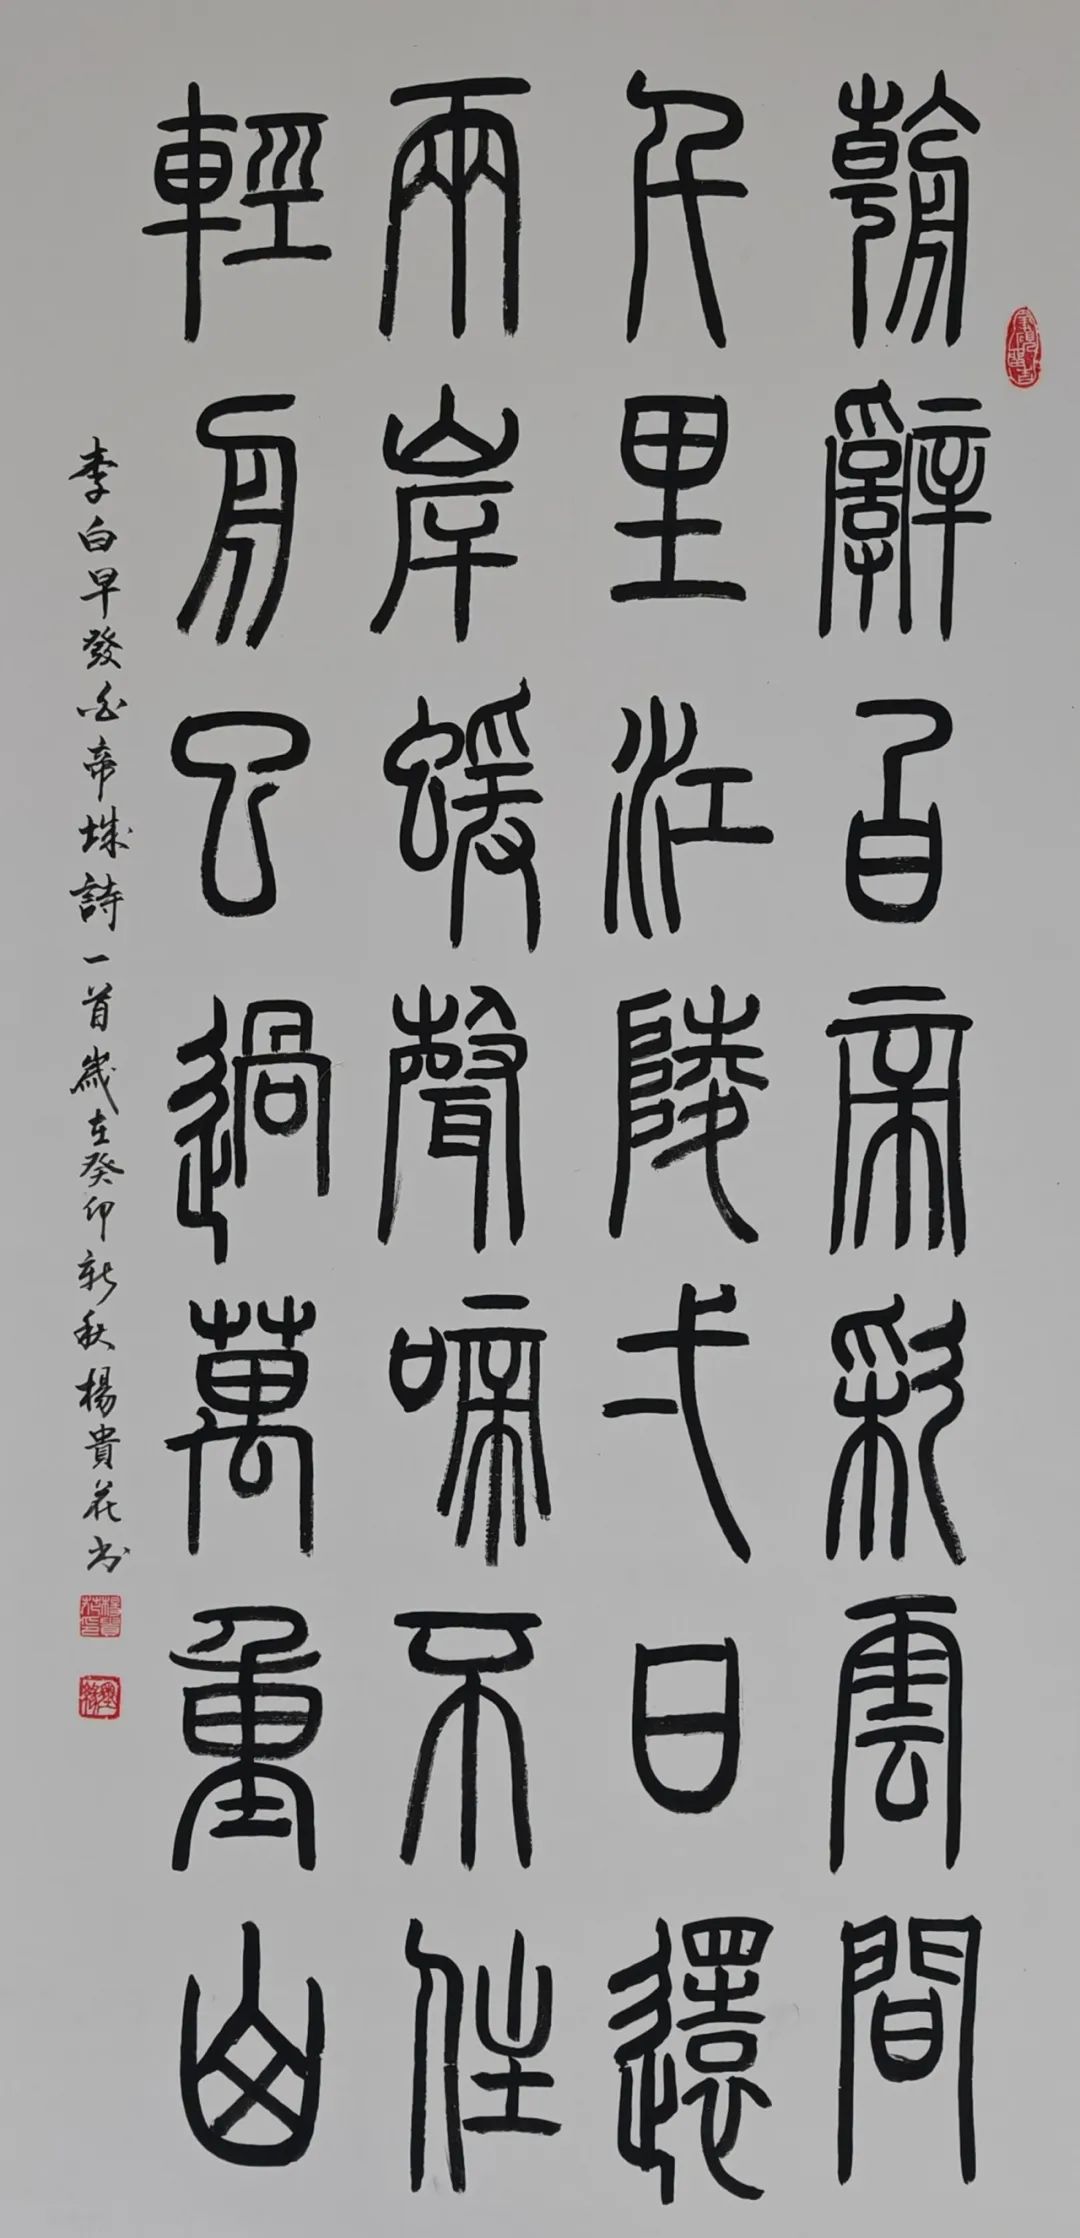 朝辭白帝彩雲間
千里江陵弌日還
兩岸蝯聲啼不住
輕舟已過萬重山
李白早發白帝城詩一首歲在癸卯新秋楊貴花书